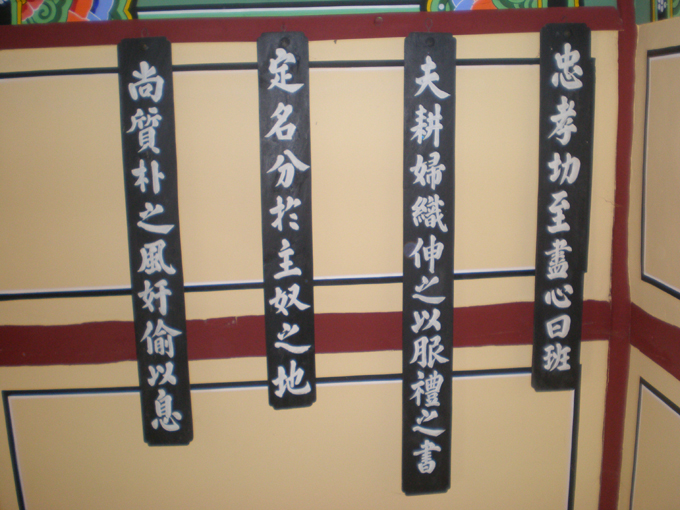 忠孝功至盡心曰班
夫耕婦織伸之以服禮之書
定名分於主奴之地
尚質朴之風奸偷以息